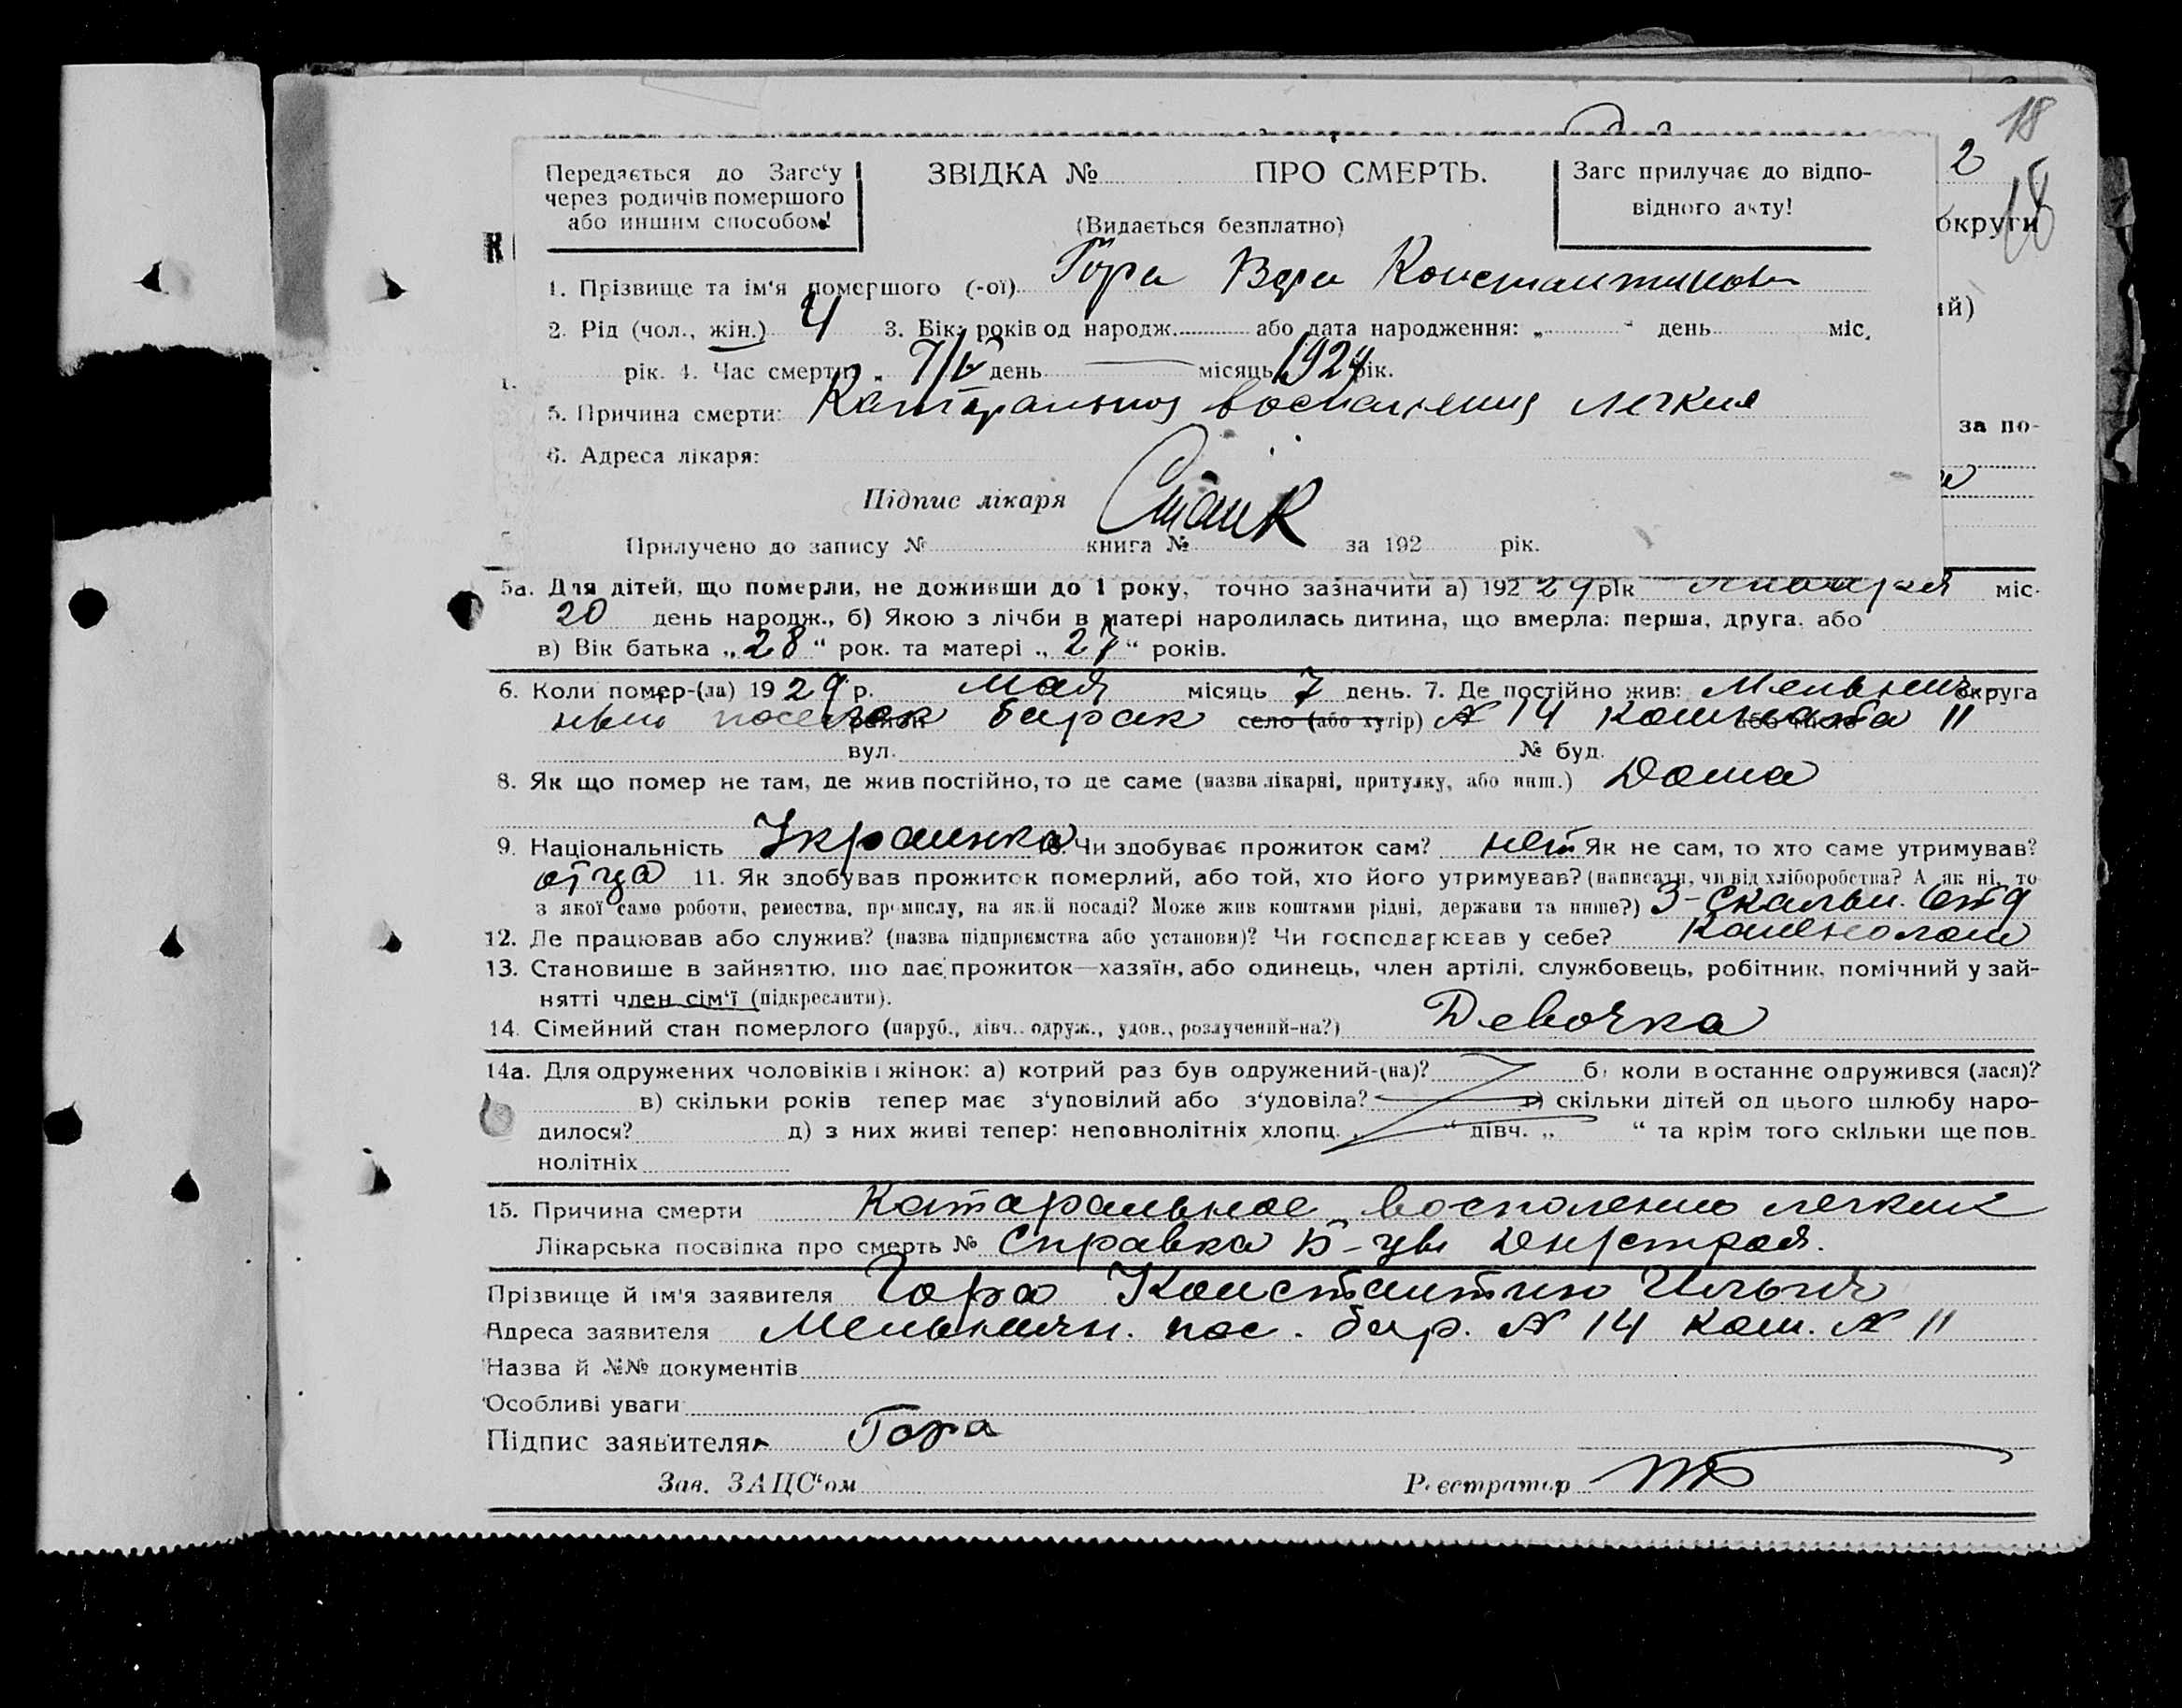 18
2
18
Передається до Загс‘у
через родичів помершого
або иншим способом!
ЗВІДКА № ПРО СМЕРТЬ.
(Видається безплатно)
Загс прилучає до відпо-
відного акту!
округи
ій)
1. Прізвище та ім'я помершого (-ої) Гора Вера Константинов
2. Рід (чол., жін.) 3. Вік: років од народж. або дата народження: „ “ день міс.
рік. 4. Час смерти: „ 7/V день місяць 1929 рік.
5. Причина смерти: Катаральное воспаление легких
за по-
6. Адреса лікаря:
Підпис лікаря
Прилучено до запису № книга № за 192 рік.
5а. Для дітей, що померли, не доживши до 1 року, точно зазначити а) 192 29 рік января міс.
20 день народж., б) Якою з лічби в матері народилась дитина, що вмерла: перша, друга, або
в) Вік батька „ 28 “ рок. та матері „ 27 “ років.
6. Коли помер-(ла) 19 29 р. мая місяць 7 день. 7. Де постійно жив: округа
поселок барак село (або хутір) № 14 комната 11
вул. № буд.
8. Як що помер не там, де жив постійно, то де саме (назва лікарні, притулку, або инш.) Дома
9. Національність Украинка 10. Чи здобуває прожиток сам? нет Як не сам, то хто саме утримував?
отца 11. Як здобував прожиток померлий, або той, хто його утримував? (написати, чи від хліборобства? А як ні, то
з якої саме роботи, ремества, промислу, на якій посаді? Може жив коштами рідні, держави та инше?) 3-Скальн. отд
12. Де працював або служив? (назва підприємства або установи)? Чи господарював у себе? Каменолом
13. Становище в зайняттю, що дає прожиток—хазяїн, або одинець, член артілі, службовець, робітник, помічний у зай-
нятті член сім‘ї (підкреслити).
14. Сімейний стан померлого (паруб., дівч., одруж., удов., розлучений-на?) Девочка
14а. Для одружених чоловіків і жінок: а) котрий раз був одружений-(на)? б) коли в останнє одружився (лася)?
в) скільки років тепер має з‘уповілий або з‘удовіла? г) скільки дітей од цього шлюбу наро-
дилося? д) з них живі тепер: неповнолітніх хлопц. „ “ дівч. „ “ та крім того скільки ще пов.
нолітніх
15. Причина смерти Катаральное воспаление легких
Лікарська посвідка про смерть № Справка Б-цы Днепрстроя.
Прізвище й ім'я заявителя Гора Константин Ильич
Адреса заявителя пос. бар. № 14 ком. № 11
Назва й №№ документів
Особливі уваги
Підпис заявителя Гора
Зав. ЗАЦС‘ом Реєстратор